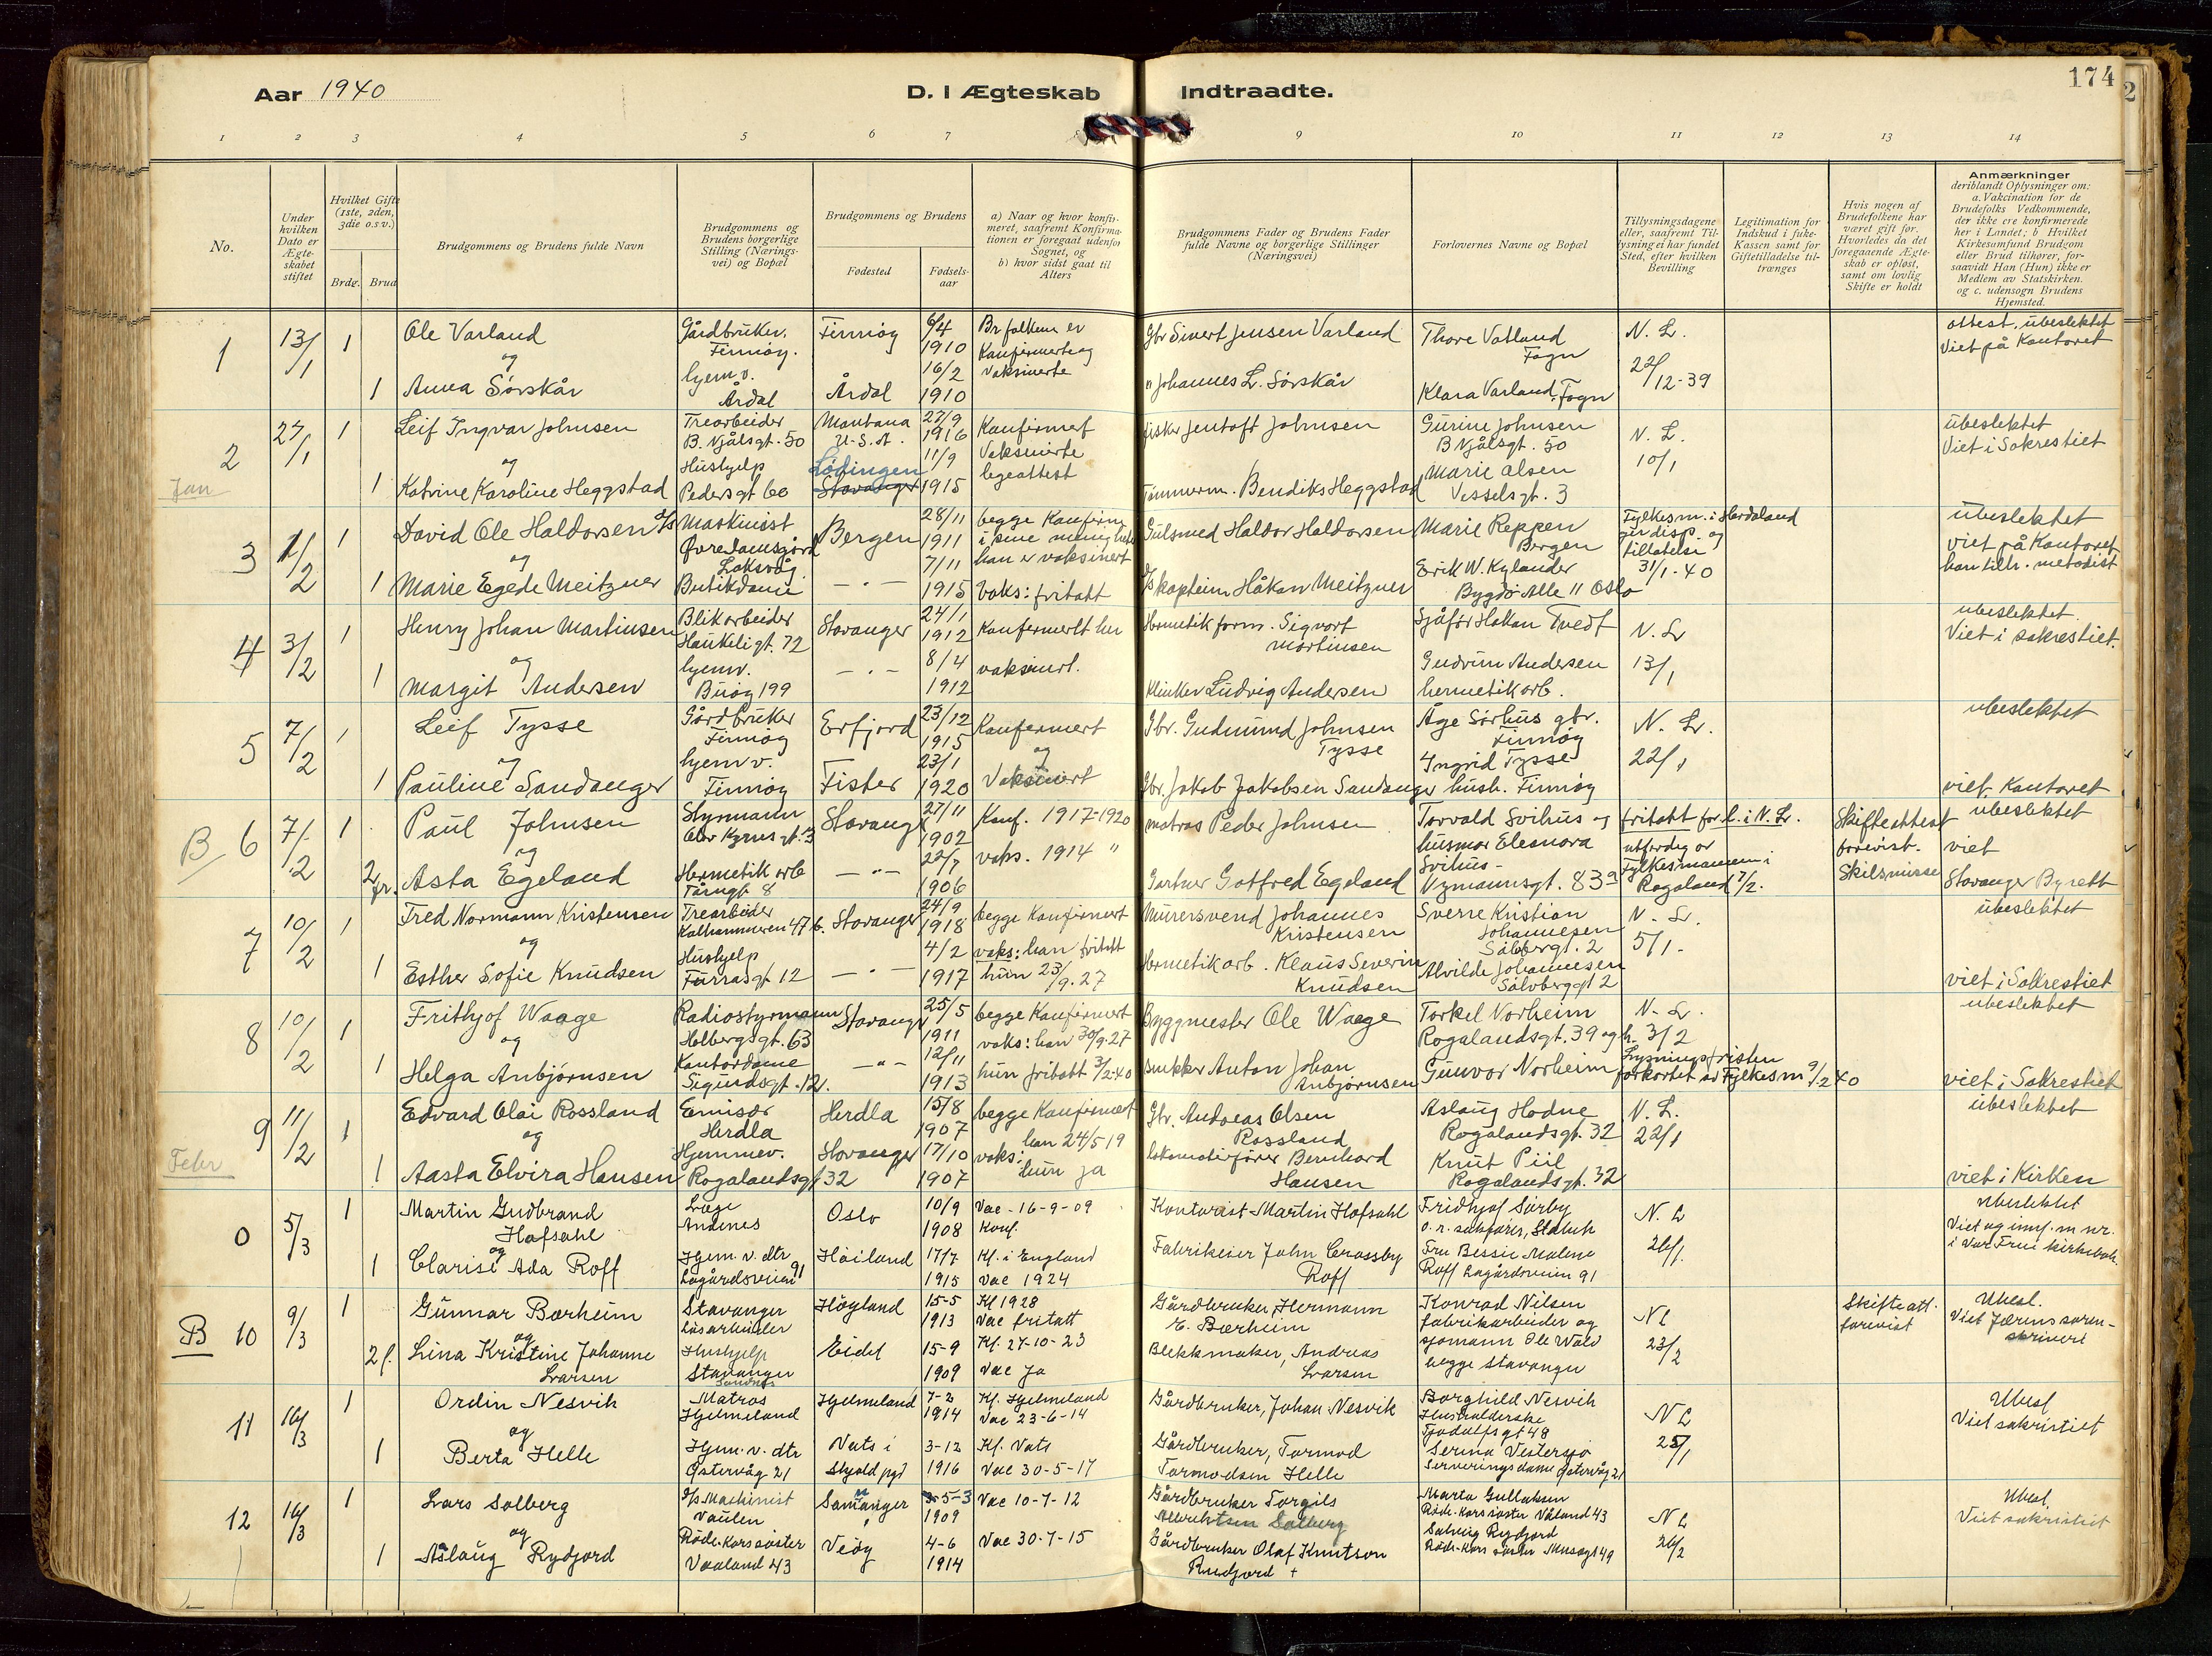 Aar 1940
D. I Ægteskab Indtraadte.
174
1 2 3 4 5 6 7 8 9 10 11 12 13 14
No.
Under hvilken Dato er Ægteskabet stiftet
Hvilket Gifte (1ste, 2den, 3die o.s v.)
Brdg. Brud
Brudgommens og Brudens fulde Navn
Brudgommens og Brudens borgerlige Stilling (Næringsvei) og Bopæl
Brudgommens og Brudens
Fødested
Fødselsaar
a) Naar og hvor konfirmeret, saafremt Konfirmationen er foregaat udenfor Sognet, og
b) hvor sidst gaat til Alters
Brudgommens Fader og Brudens Fader fulde Navne og borgerlige Stillinger (Næringsvei)
Forlovernes Navne og Bopæl
Tillysningsdagene eller, saafremt Tillysning ei har fundet Sted, efter hvilken Bevilling
Legitimation for Indskud i Enke-Kassen samt for Giftetilladelse tiltrænges
Hvis nogen af Brudefolkene har været gift før. Hvorledes da det foregaaende Ægteskab er opløst, samt om lovlig Skifte er holdt
Anmærkninger
deriblandt Oplysninger om: a. Vakcination for de Brudefolks Vedkommende, der ikke ere konfirmerede her i Landet; b Hvilket Kirkesamfund Brudgom eller Brud tilhører, forsaavidt Han (Hun) ikke er Medlem av Statskirken. og c. udensogn Brudens Hjemsted.
1 13/1 1 Ole Varland Gårdbruker. Finnøy. Finnøy 6/4 1910 Br folkene er Konfirmerte og vaksinerte Gbr Sivert Jensen Varland Thore Vatland Fogn N. L. 22/12-39 attest. ubeslektet Viet på Kontoret
og
1 Anna Sørskår hjemv. Årdal Årdal 16/2 1910 " Johannes L. Sørskår Klara Varland, Fogn
2 27/1 1 Leif Ingvar Johnsen Trearbeider B. Njålsgt. 50 Montana U.S.A. 27/9 1916 Konfirmert Vaksinerte legeattest fisker Jentoft Johnsen Gurine Johnsen B Njålsgt. 50 N. L. 10/1 ubeslektet Viet i Sakrestiet
og
Jan
1 Katrine Karoline Heggstad Hushjelp Pedersgt 60 Lødingen Stavanger 11/9 1915 Tømmerm. Bendiks Heggstad Marie Olsen Vesselsgt. 3
3 1/2 1 David Ole Haldorsen Maskinist Øvre Damsgård Laksevåg Bergen 28/11 1911 begge Konfirm i sine menigheter han er vaksinert Gulsmed Haldor Haldorsen Marie Reppen Bergen Fylkesm. i Hordaland gir disp. og tillatelse 31/1-40 ubeslektet viet på Kontoret han tilh. metodist
og
1 Marie Egede Meitzner Butikdame — " — 7/11 1915 Vaks: fritatt kaptein Håkon Meitzner Erik W. Kylander Bygdø Alle 11 Oslo
4 3/2 1 Henry Johan Martinsen Blikarbeider Haukeligt. 72 Stavanger 24/1 1912 Konfermert her vaksinert. Hermetikform. Sigvart Martinsen Sjåfør Håkon Tvedt N. L 13/1 ubeslektet. Viet i sakrestiet.
og
1 Margit Andersen hjemv. Buøy 199 — " — 8/4 1912 Klinker Ludvig Andersen Gudrun Andersen hermetikarb.
5 7/2 1 Leif Tysse Gårdbruker Finnøy Erfjord 23/12 1915 Konfermert og Vaksinert Gbr. Gudmund Johnsen Tysse Åge Sørhus gbr. Finnøy N. L. 22/1 ubeslektet
og
1 Pauline Sandanger hjemv. Finnøy Fister 23/1 1920 Gbr. Jakob Jakobsen Sandanger Ingrid Tysse hush. Finnøy viet. Kontoret
B 6 7/2 1 Paul Johnsen Styrmann Olav Kyrres gt. 3 Stavanger 27/11 1902 Konf. 1917-1920 vaks. 1914 " matros Peder Johnsen Torvald Svihus og husmor Elenora Svihus - Nymannsgt. 83 a fritatt for l. i N. L. utferdig av Fylkesmannen i Rogaland 7/2. Skifteattest forevist. Skilsmisse ubeslektet viet Stavanger Byrett
og
2 fr. Asta Egeland Hermetik arb Tårngt. 8 — " — 22/7 1906 Gartner Gotfred Egeland
7 10/2 1 Fred Normann Kristensen Trearbeider Kalhammeren 47 b. Stavanger 24/9 1918 begge Konfirmert vaks: han fritatt hun 23/9.27 Murersvend Johannes Kristensen Sverre Kristian Johannesen Sølvbergt. 2 N. L. 5/1- ubeslektet
og
1 Esther Sofie Knudsen Hushjelp Furrasgt 12 — " — 4/2 1917 Hermetikarb. Klaus Severin Knudsen Alvilde Johannesen Sølvberggt 2 viet i Sakrestiet
8 10/2 1 Frithjof Waage Radiostyrmann Holbergsgt. 63 Stavanger 25/5 1911 begge Konfirmert vaks: han 30/9.27 hun fritatt 3/2.40 Byggmester Ole Waage Torkel Norheim Rogalandsgt. 39 og h. N- L. 3/2 ubeslektet
og
1 Helga Anbjørnsen Kontordame Sigurdsgt. 12. — " — 12/11 1913 Snekker Anton Johan Anbjørnsen Gunvor Norheim Lysningsfristen forkortet av Fylkesm 9/2 40 viet i Sakrestiet
9 11/2 1 Edvard Olai Rossland Emisær Herdla Herdla 15/8 1907 begge Konfirmert vaks: han 24/5 19 hun ja Gbr. Andreas Olsen Rossland Aslaug Hodne Rogalandsgt. 32 N. L. 22/1 ubeslektet
og
Febr
1 Aasta Elvira Hansen Hjemmev. Rogalandsgt 32 Stavanger 17/10 1907 Lokomotivfører Bernhard Hansen Knut Piil Rogalandsgt. 32 viet i Kirken
0 5/3 1 Martin Gudbrand Hofsahl Læge Andenes Oslo 10/9 1908 Vac - 16-9-09 Konf. Kontorist Martin Hofsahl Fridhjof Sørby o. r. sakfører, N. L 26/1. ubeslektet Viet og innf. m nr. i Vår Frue kirkebok.
og
1 Clarise Ada Roff Hjem. v. dtr Lagårdsveien 91 Høiland 17/7 1915 Kf. i England Vac 1924 Fabrikeier John Crossby Roff Fru Bessie Malene Roff Lagårdsveien 91
B 10 9/3 1 Gunnar Bærheim Stavanger Løsarbeider Høyland 15-5 1913 Kf 1928 Vac fritatt Gårdbruker, Hermann E. Bærheim Konrad Nilsen fabrikarbeider og sjømann Ole Wald begge Stavanger NL 23/2 Skifteatt. forevist Ubesl. Viet Jærens sorenskriveri
og
2 f. Lina Kristine Johanne Larsen Hushjelp Stavanger Sandnes Eidet 15-9 1909 Kf. 27-10-23 Vac Ja Blekkmaker, Andreas Larsen
11 16/3 1 Ordin Nesvik Matros Hjelmeland Hjelmeland 7-2 1914 Kf. Hjelmeland Vac 23-6-14 Gårdbruker, Johan Nesvik Borghild Nesvik Husholderske Tjodolfsgt 48 NL 25/1 Ubesl Viet sakristiet
og
1 Berta Helle Hjem. v. dtr Østervåg 21 Vats i Skjold pgd 3-12 1916 Kf. Vats Vac 30-5-17 Gårdbruker, Tormod Tormodsen Helle Serina Vestersjø Serveringsdame Østervåg 21
12 16/3 1 Lars Solberg d/s Maskinist Vaulen Samnanger 5-3 1909 Vac 10-7-12 Gårdbruker Torgils Albrektsen Solberg Marta Gullaksen Røde-Korssøster Våland 43 NL 26/2 Ubesl. Viet sakristiet
og
1 Aslaug Rydjord Røde-Korssøster Vaaland 43 Veøy 4-6 1914 Vac 30-7-15 Gårdbruker Olaf Knutson Rudjord + Solveig Rydjord Røde-Kors søster Musegt 49